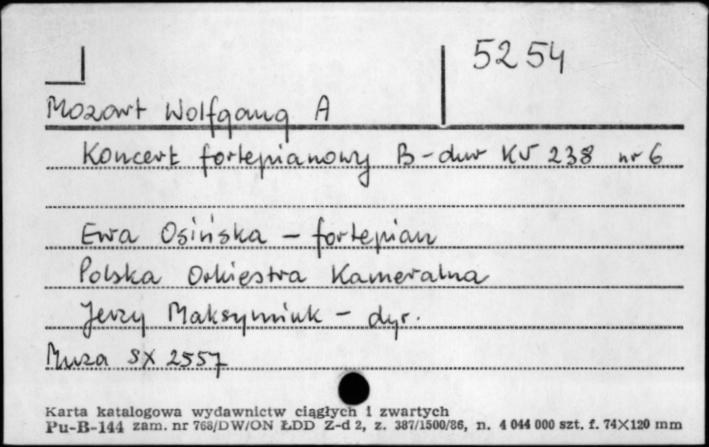 5254
Mozart Wolfgang A
Koncert fortepianowy B-dur KV 238 nr 6
Ewa Osińska – fortepian
Polska Orkiestra Kameralna
Jerzy Maksymiuk – dyr.
Muza SX 2557
Karta katalogowa wydawnictw ciągłych i zwartych
Pu-B-144 zam. nr 768/DW/ON ŁDD Z-d 2, z. 387/1500/86, n. 4 044 000 szt. f. 74×120 mm